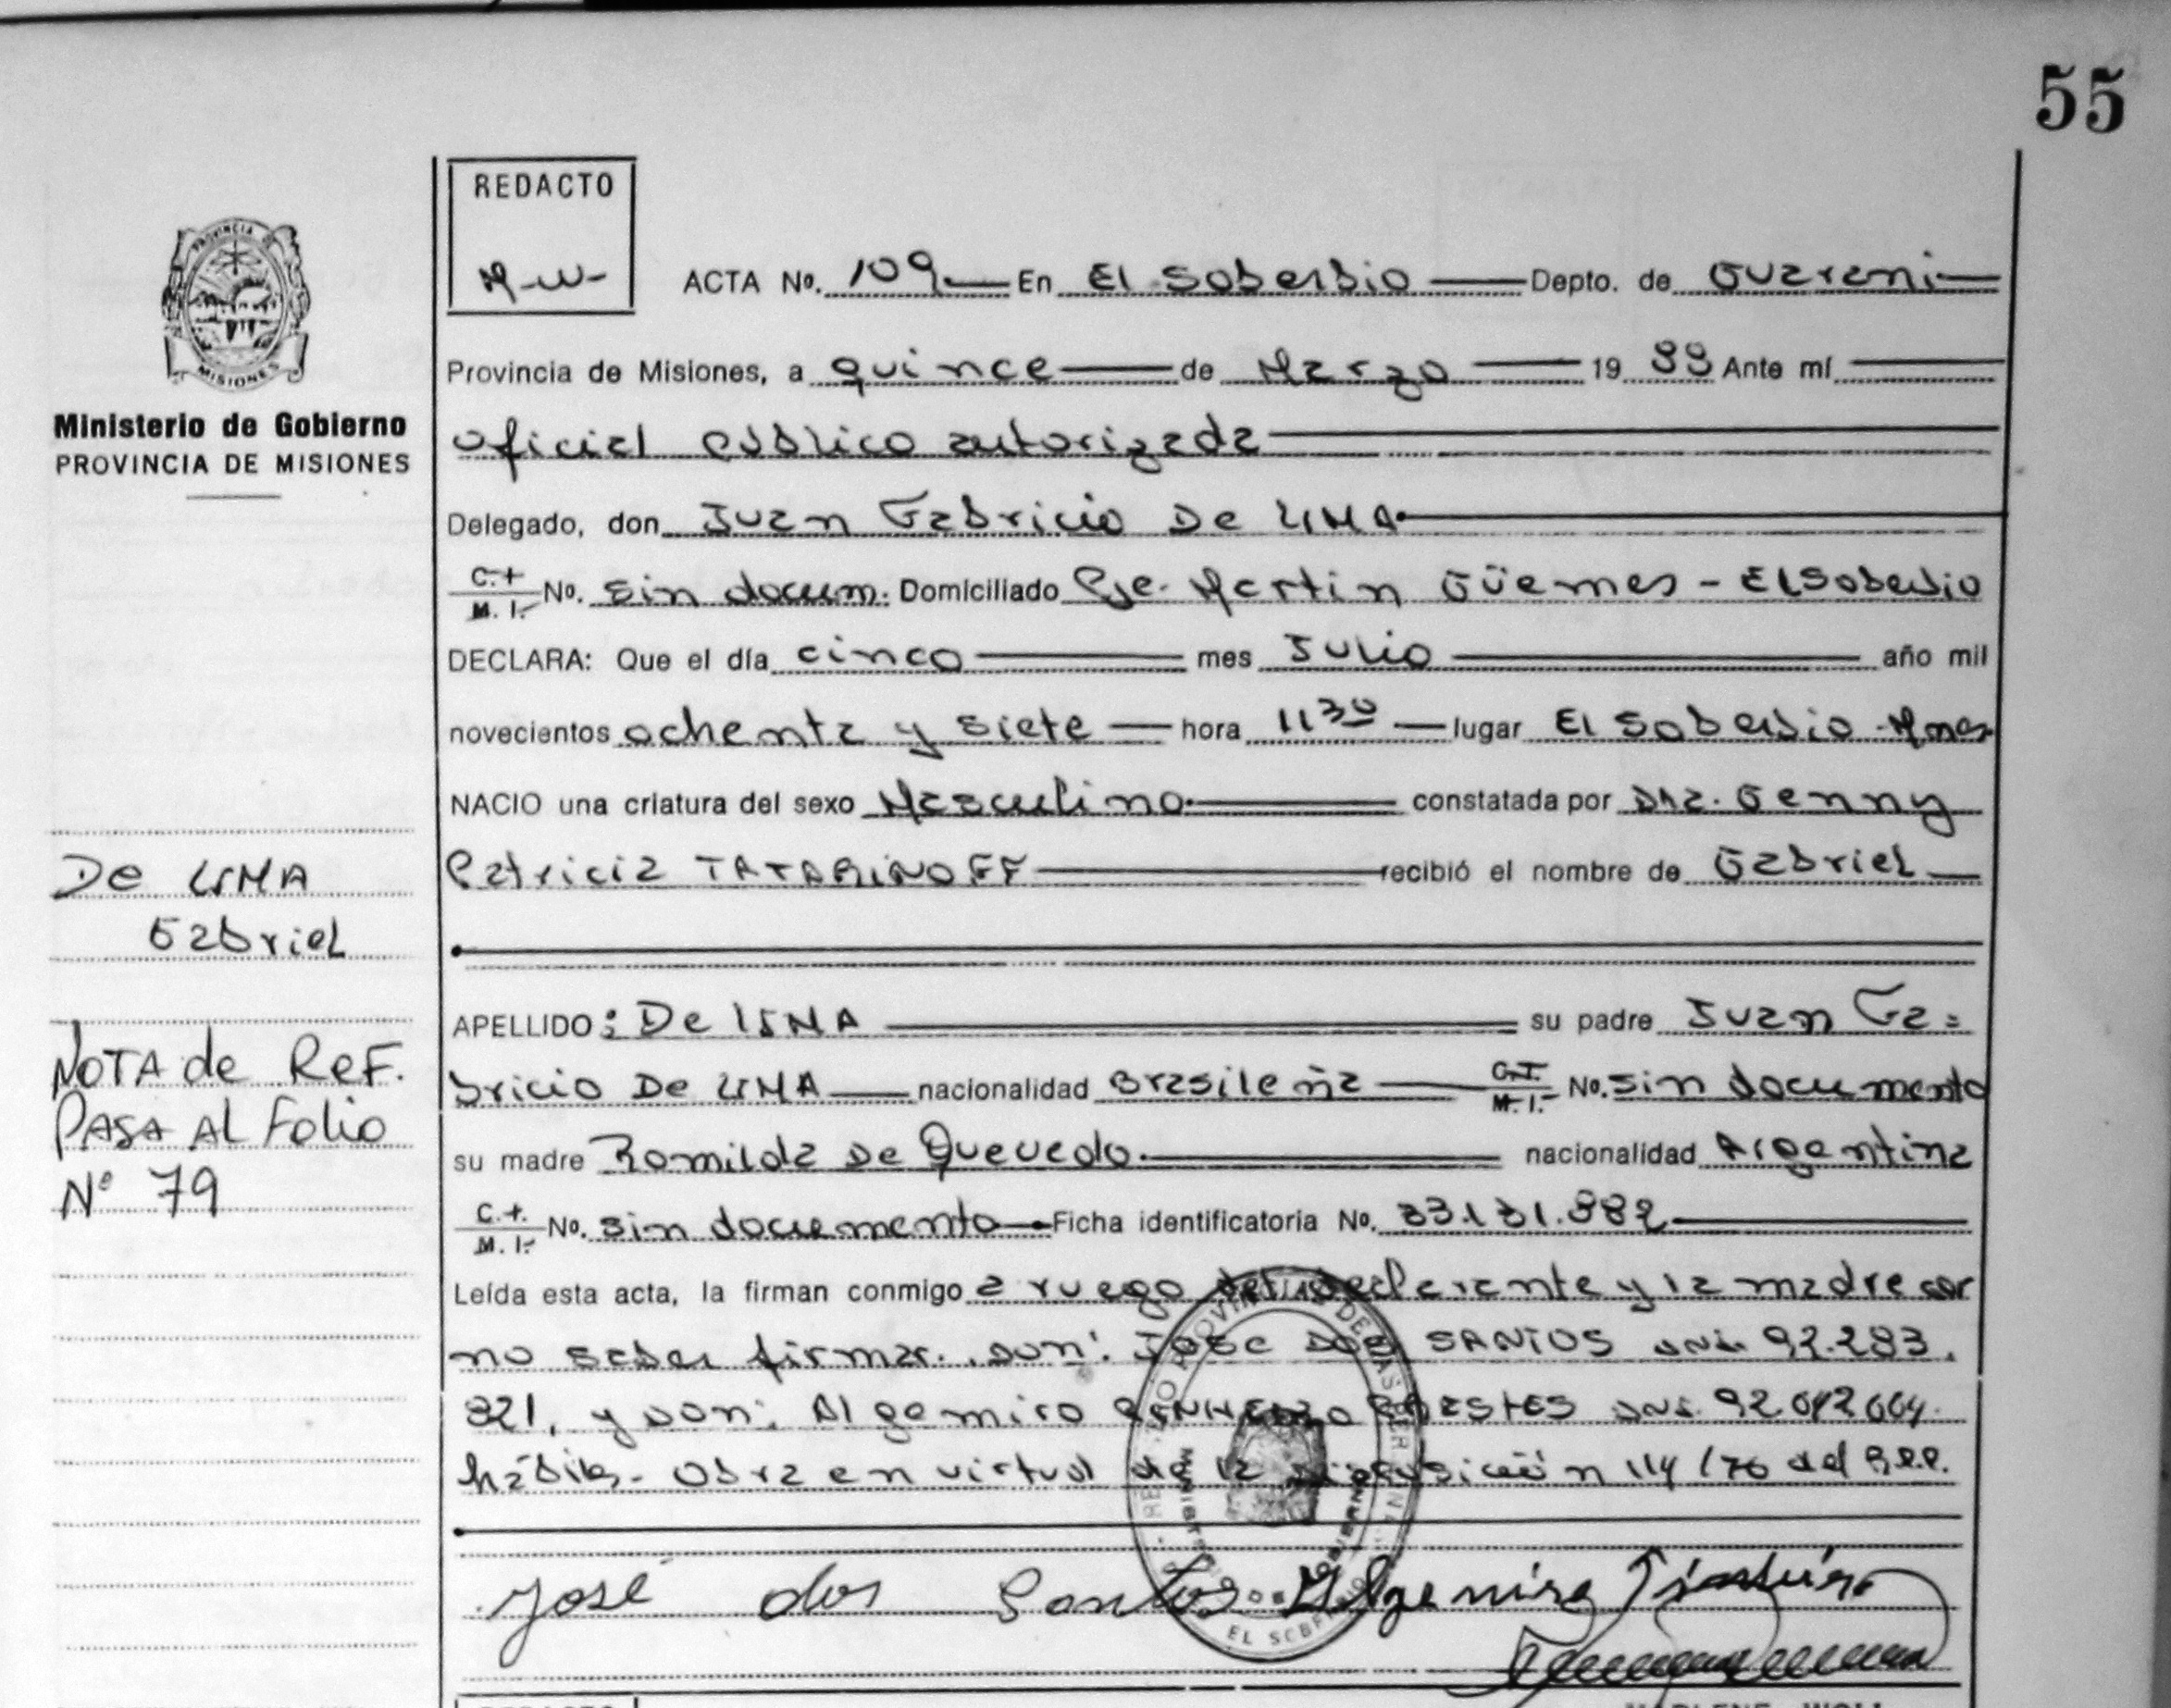 55
REDACTO
M-W-
ACTA No. 109 En El Soberbio Depto. de Guarani
Provincia de Misiones, a quince de Marzo 19 Ante mí
Ministerio de Gobierno
PROVINCIA DE MISIONES
oficial público autorizada
Delegado, don Juan Fabricio De LIMA
C.I. M. I. No. sin docum. Domiciliado Pje. Martin Güemes - El Soberbio
DECLARA: Que el día cinco mes Julio año mil
novecientos ochenta y siete hora 11 30 lugar El Soberbio Mnes
NACIO una criatura del sexo Masculino constatada por Dra. Genny
Patricia TATARINOFF recibió el nombre de Gabriel
De LIMA
Gabriel
APELLIDO: De LIMA su padre Juan Fa=
bricio De LIMA nacionalidad Brasileña C.I. M. I. No. sin documento
su madre Romilda De Quevedo nacionalidad Argentina
C.I. M. I. No. sin documento Ficha identificatoria No.
NOTA de ReF.
PASA AL Folio
N° 79
Leída esta acta, la firman conmigo a ruego del declarante y la madre por
no saber firmar. don: Jose Dos SANTOS DNI. 92.283.
821, y don: Algemiro PRESTES DNI. 92.042.004
hábiles. Obra en virtud de la disposición 114/76 del
PROVINCIA DE
MISIONES
José dos Santos
EL SOBERBIO